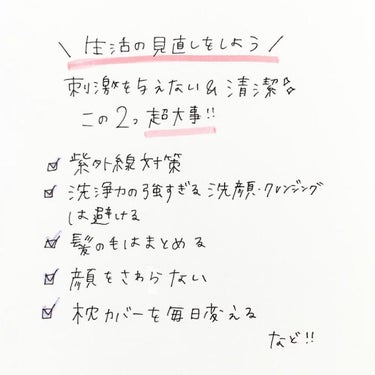 ＼ 生活の見直しをしよう ／
刺激を与えない & 清潔☆
この2つ超大事!!
☑ 紫外線対策
☑ 洗浄力の強すぎる洗顔・クレンジング
は避ける
☑ 髪の毛はまとめる
☑ 顔をさわらない
☑ 枕カバーを毎日変える
など!!